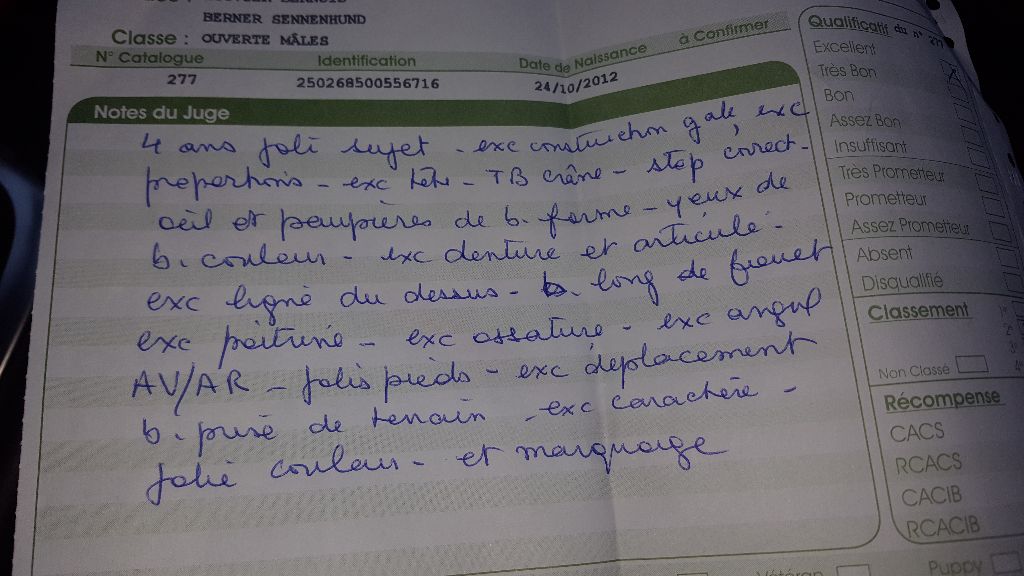 BERNER SENNENHUND
Classe : OUVERTE MÂLES
N° Catalogue Identification Date de Naissance à Confirmer
277 250268500556716 24/10/2012
Notes du Juge
4 ans joli sujet - exc construction gale, exc
proportions - exc tête - TB crâne - stop correct -
œil et paupières de b. forme - yeux de
b. couleur - exc denture et articulé -
exc ligne du dessus - b. long de fouet
exc poitrine - exc ossature - exc angul
AV/AR - jolis pieds - exc déplacement
b. prise de terrain - exc caractère -
jolie couleur - et marquage
Qualificatif du n° 277
Excellent
Très Bon
Bon
Assez Bon
Insuffisant
Très Prometteur
Prometteur
Assez Prometteur
Absent
Disqualifié
Classement
1°
2°
3°
4°
Non Classé
Récompense
CACS
RCACS
CACIB
RCACIB
Vétéran Puppy